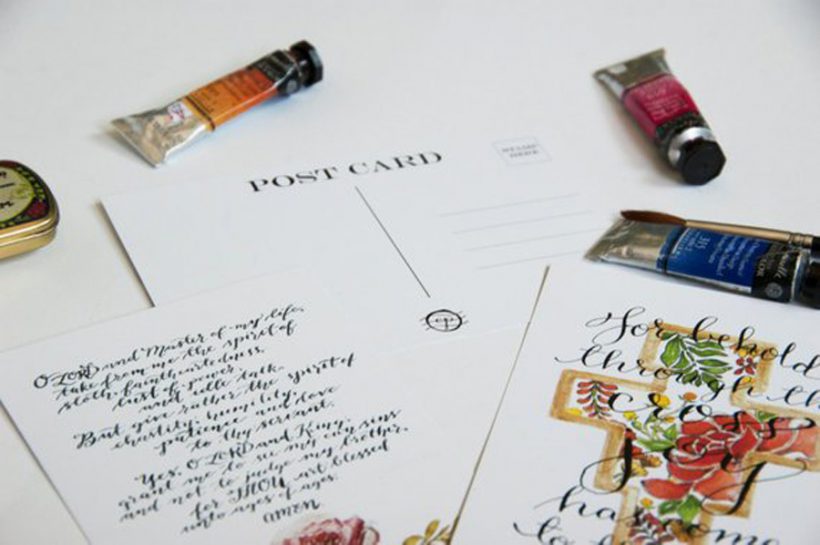 POST CARD
O LORD and Master of my life,
take from me the spirit of
sloth, faintheartedness,
lust of power,
and idle talk.
But give rather the spirit of
chastity, humility,
patience and love
to thy servant.
Yes, O LORD and King,
grant me to see my own sins
and not to judge my brother.
for THOU art blessed
unto ages of ages.
amen
For behold
through th
cross
joy
has come
to
315